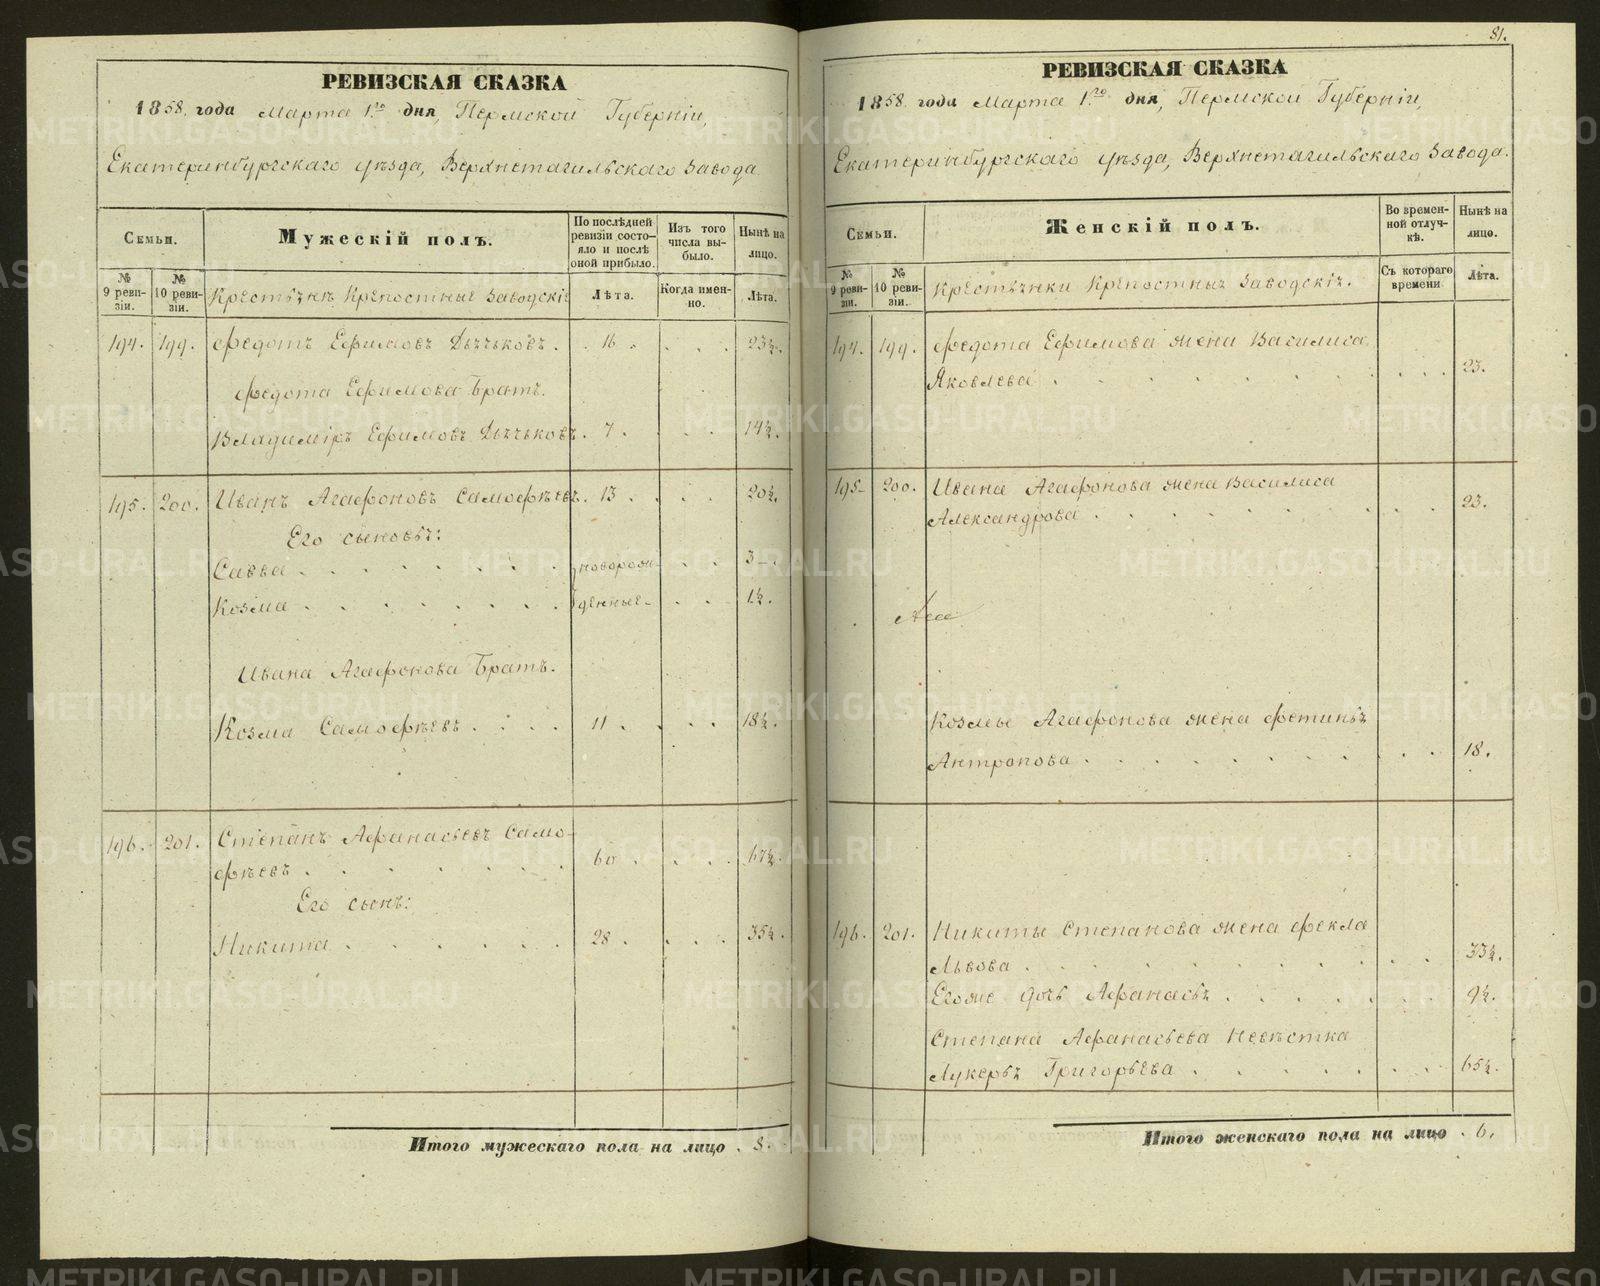 РЕВИЗСКАЯ СКАЗКА
1858. года Марта 1го дня, Пермской Губерніи,
Екатеринбургскаго уѣзда, Верхнетагильскаго Завода
Семьи.
Мужескій полъ.
По послѣдней ревизіи состояло и послѣ оной прибыло.
Изъ того числа выбыло.
Нынѣ на лицо.
№ 9 ревизіи.
№ 10 ревизіи.
Крестьяне Крѣпостные Заводскіе
Лѣта.
Когда именно.
Лѣта.
194. 199. Федотъ Ефимовъ . 16 . . . . 23½.
Федота Ефимова Братъ.
Владиміръ Ефимовъ . 7 . . . . 14½.
195. 200. Иванъ Агафоновъ Самофѣевъ. 13 . . . 20½.
Его сыновья:
Савва . . . . . . . новорож- . . 3 - .
Козма . . . . . . . денные - . . 1½.
Ивана Агафонова Братъ.
Козма Самофѣевъ . . . . 11 . . . . 18½.
196. 201. Степанъ Афанасьевъ Само-
фѣевъ . . . . . . . 60 . . . . 67½.
Его сынъ:
Никита . . . . . . 28 . . . . 35½.
Итого мужескаго пола на лицо . 8.
81.
РЕВИЗСКАЯ СКАЗКА
1858. года Марта 1го дня, Пермской Губерніи,
Екатеринбургскаго уѣзда, Верхнетагильскаго Завода.
Семьи.
Женскій полъ.
Во временной отлучкѣ.
Нынѣ на лицо.
№ 9 ревизіи.
№ 10 ревизіи.
Крестьянки Крѣпостныя Заводскія.
Съ котораго времени
Лѣта.
194. 199. Федота Ефимова жена Василиса
Яковлева . . . . . . . . . . 23.
195. 200. Ивана Агафонова жена Василиса
Александрова . . . . . . . . . 23.
Козмы Агафонова жена Фетинья
Антропова . . . . . . . . . . 18.
196. 201. Никиты Степанова жена Фекла
Львова . . . . . . . . . . 33½.
Егоже дочь Афанасья . . . . . . . 9½.
Степана Афанасьева Невѣстка
Лукерья Григорьева . . . . . . . 65½.
Итого женскаго пола на лицо . 6.
METRIKI.GASO-URAL.RU